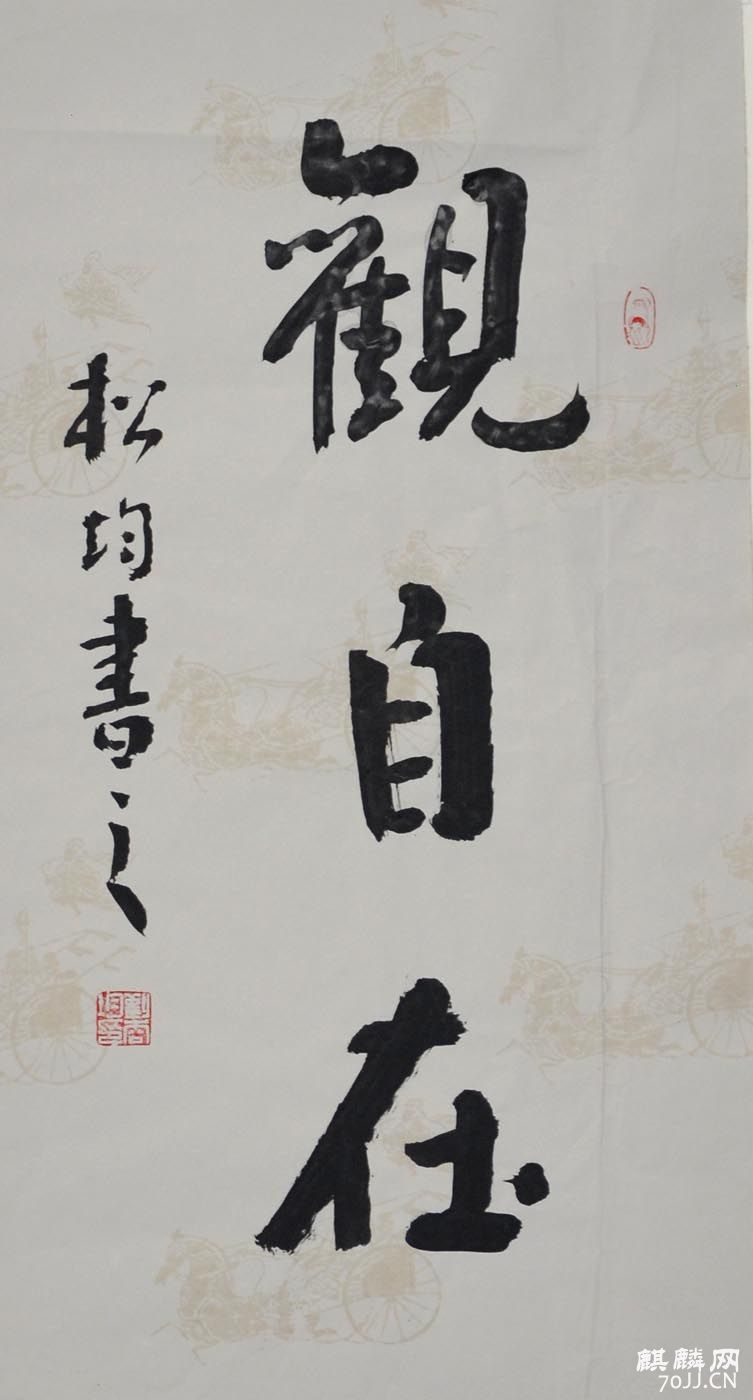 觀自在
松均書之
麒麟网
70JJ.CN